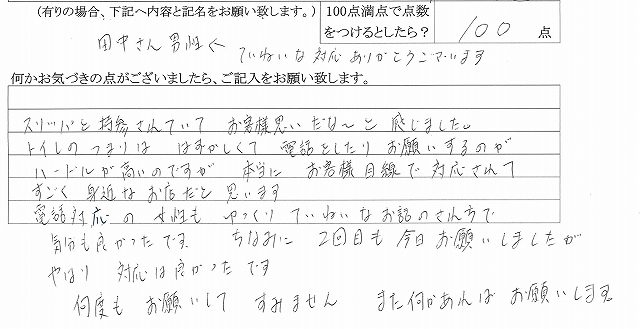 （有りの場合、下記へ内容と記名をお願い致します。）
100点満点で点数をつけるとしたら？ 100 点
田中さん男性く ていねいな対応ありがとうございます
何かお気づきの点がございましたら、ご記入をお願い致します。
スリッパを持参されていて お客様思いだな〜と 感じました。
トイレのつまりは はずかしくて 電話をしたり お願いするのが
ハードルが高いのですが 本当に お客様目線で対応されて
すごく 身近なお店だと 思います
電話対応の 女性も ゆっくり ていねいなお話のされ方で
気分も良かったです ちなみに 2回目も今日お願いしましたが
やはり 対応は良かったです
何度も お願いして すみません また何かあれば お願いします